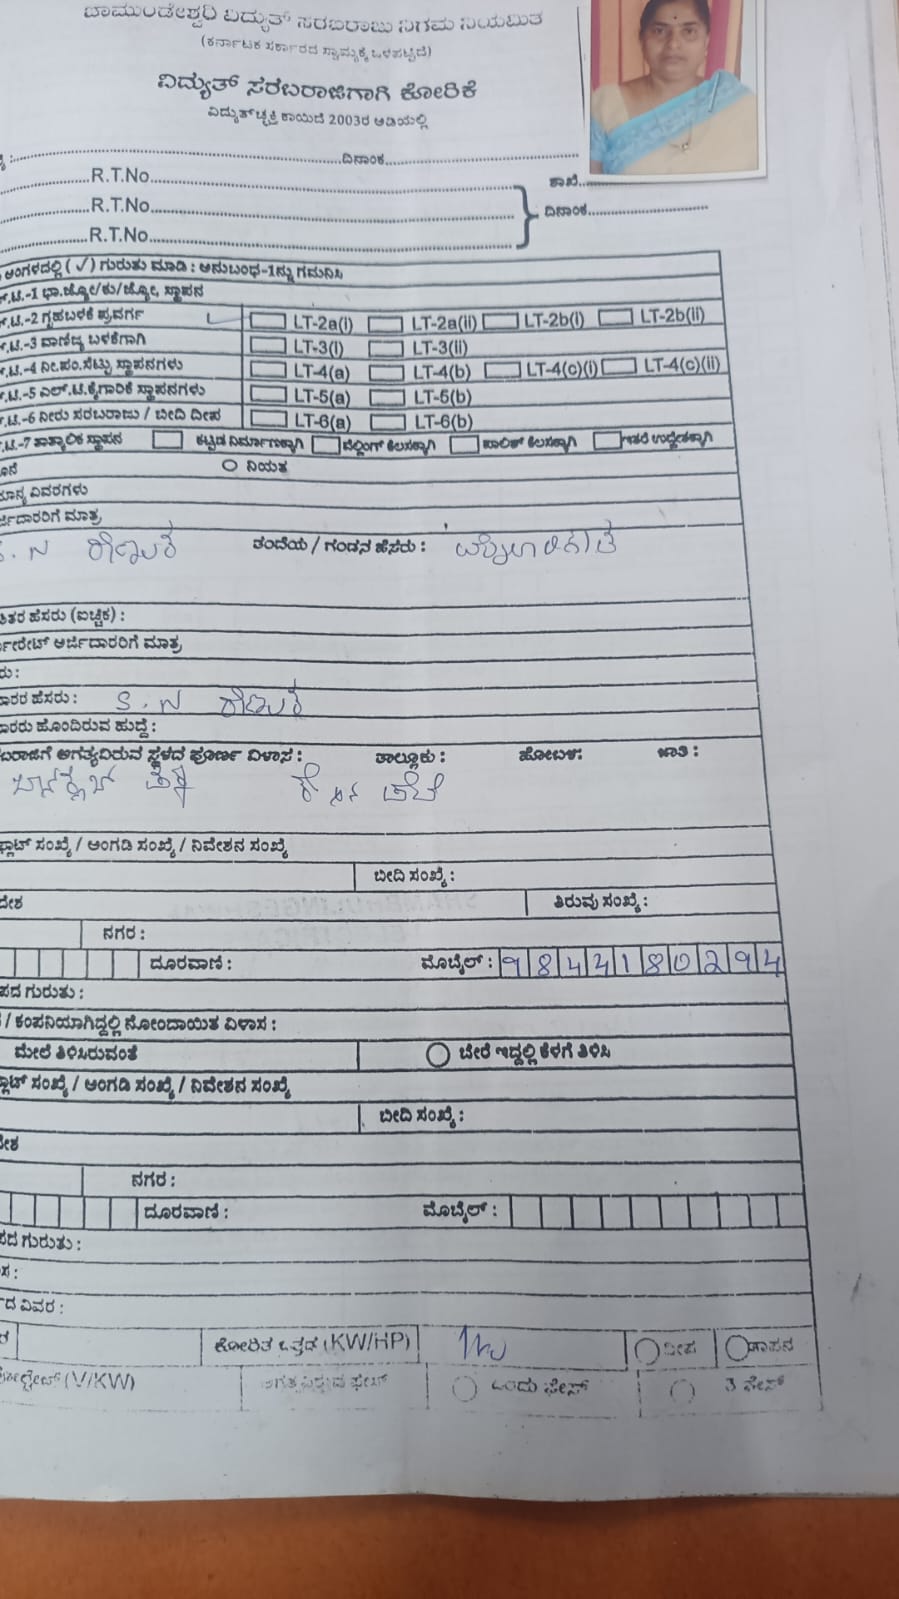 ಚಾಮುಂಡೇಶ್ವರಿ ವಿದ್ಯುತ್ ಸರಬರಾಜು ನಿಗಮ ನಿಯಮಿತ
(ಕರ್ನಾಟಕ ಸರ್ಕಾರದ ಸ್ವಾಮ್ಯಕ್ಕೆ ಒಳಪಟ್ಟಿದೆ)
ವಿದ್ಯುತ್ ಸರಬರಾಜಿಗಾಗಿ ಕೋರಿಕೆ
ವಿದ್ಯುತ್‌ಚ್ಛಕ್ತಿ ಕಾಯಿದೆ 2003ರ ಅಡಿಯಲ್ಲಿ
ದಿನಾಂಕ
R.T.No ಶಾಖೆ
R.T.No ದಿನಾಂಕ
R.T.No
ಅಂಗಳದಲ್ಲಿ (✓) ಗುರುತು ಮಾಡಿ : ಅನುಬಂಧ-1ನ್ನು ಗಮನಿಸಿ
.ಟಿ.-1 ಭಾ.ಜ್ಯೋ/ಕು/ಜ್ಯೋ, ಸ್ಥಾಪನ
.ಟಿ.-2 ಗೃಹಬಳಕೆ ಪ್ರವರ್ಗ LT-2a(i) LT-2a(ii) LT-2b(i) LT-2b(ii)
.ಟಿ.-3 ವಾಣಿಜ್ಯ ಬಳಕೆಗಾಗಿ LT-3(i) LT-3(ii)
.ಟಿ.-4 ನೀ.ಪಂ.ಸೆಟ್ಟು ಸ್ಥಾಪನಗಳು LT-4(a) LT-4(b) LT-4(c)(i) LT-4(c)(ii)
.ಟಿ.-5 ಎಲ್.ಟಿ.ಕೈಗಾರಿಕೆ ಸ್ಥಾಪನಗಳು LT-5(a) LT-5(b)
.ಟಿ.-6 ನೀರು ಸರಬರಾಜು / ಬೀದಿ ದೀಪ LT-6(a) LT-6(b)
.ಟಿ.-7 ತಾತ್ಕಾಲಿಕ ಸ್ಥಾಪನ ಕಟ್ಟಡ ನಿರ್ಮಾಣಕ್ಕಾಗಿ ವೆಲ್ಡಿಂಗ್ ಕೆಲಸಕ್ಕಾಗಿ ಪಾಲಿಶ್ ಕೆಲಸಕ್ಕಾಗಿ ಇತರೆ ಉದ್ದೇಶಕ್ಕಾಗಿ
ನಿಯತ
ವಿವರಗಳು
ರ್ಜಿದಾರರಿಗೆ ಮಾತ್ರ
.N ರೇಣುಕ ತಂದೆಯ / ಗಂಡನ ಹೆಸರು :
ತರ ಹೆಸರು (ಐಚ್ಛಿಕ) :
ರ್ಪೋರೇಟ್ ಅರ್ಜಿದಾರರಿಗೆ ಮಾತ್ರ
ರು :
ದಾರರ ಹೆಸರು : S.N ರೇಣುಕ
ದಾರರು ಹೊಂದಿರುವ ಹುದ್ದೆ :
ಬರಾಜಿಗೆ ಅಗತ್ಯವಿರುವ ಸ್ಥಳದ ಪೂರ್ಣ ವಿಳಾಸ : ತಾಲ್ಲೂಕು : ಹೋಬಳಿ: ಜಾತಿ :
ಪ್ಲಾಟ್ ಸಂಖ್ಯೆ / ಅಂಗಡಿ ಸಂಖ್ಯೆ / ನಿವೇಶನ ಸಂಖ್ಯೆ
ಬೀದಿ ಸಂಖ್ಯೆ :
ದೇಶ ತಿರುವು ಸಂಖ್ಯೆ :
ನಗರ :
ದೂರವಾಣಿ : ಮೊಬೈಲ್ : 9844180294
ಪದ ಗುರುತು :
/ ಕಂಪನಿಯಾಗಿದ್ದಲ್ಲಿ ನೋಂದಾಯಿತ ವಿಳಾಸ :
ಮೇಲೆ ತಿಳಿಸಿರುವಂತೆ ಬೇರೆ ಇದ್ದಲ್ಲಿ ಕೆಳಗೆ ತಿಳಿಸಿ
ಪ್ಲಾಟ್ ಸಂಖ್ಯೆ / ಅಂಗಡಿ ಸಂಖ್ಯೆ / ನಿವೇಶನ ಸಂಖ್ಯೆ
ಬೀದಿ ಸಂಖ್ಯೆ :
ದೇಶ
ನಗರ :
ದೂರವಾಣಿ : ಮೊಬೈಲ್ :
ಪದ ಗುರುತು :
ಸ :
ದ ವಿವರ :
ಕೋರಿತ ಒತ್ತಡ (KW/HP) ದೀಪ ತಾಪನ
ವೋಲ್ಟೇಜ್ (V/KW) ಅಗತ್ಯವಿರುವ ಫೇಸ್ ಒಂದು ಫೇಸ್ 3 ಫೇಸ್